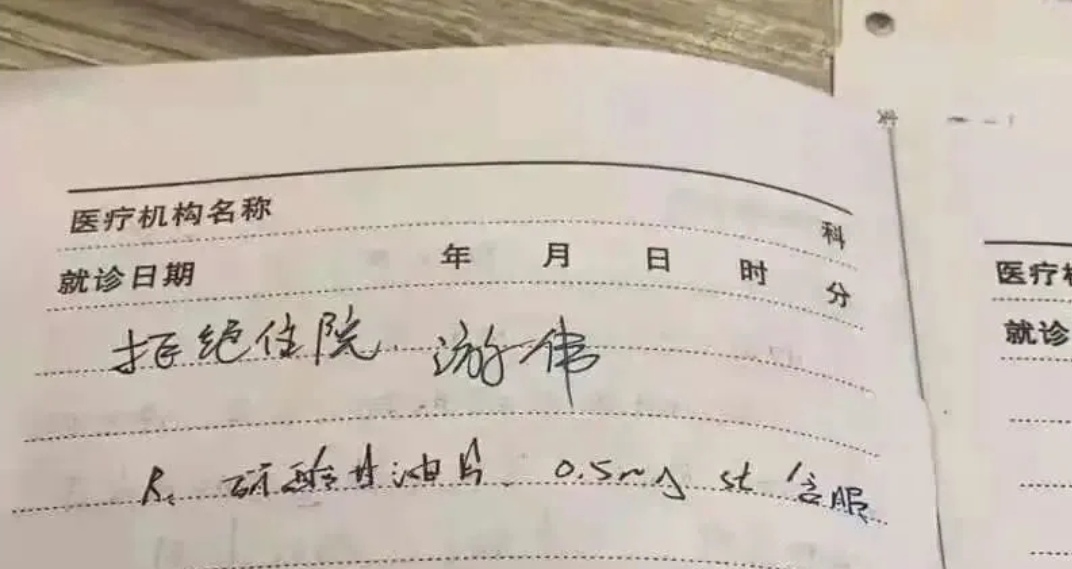 医疗机构名称 科
就诊日期 年 月 日 时 分
拒绝住院. 游伟
R: 硝酸甘油片 0.5mg st 含服
医疗
就诊